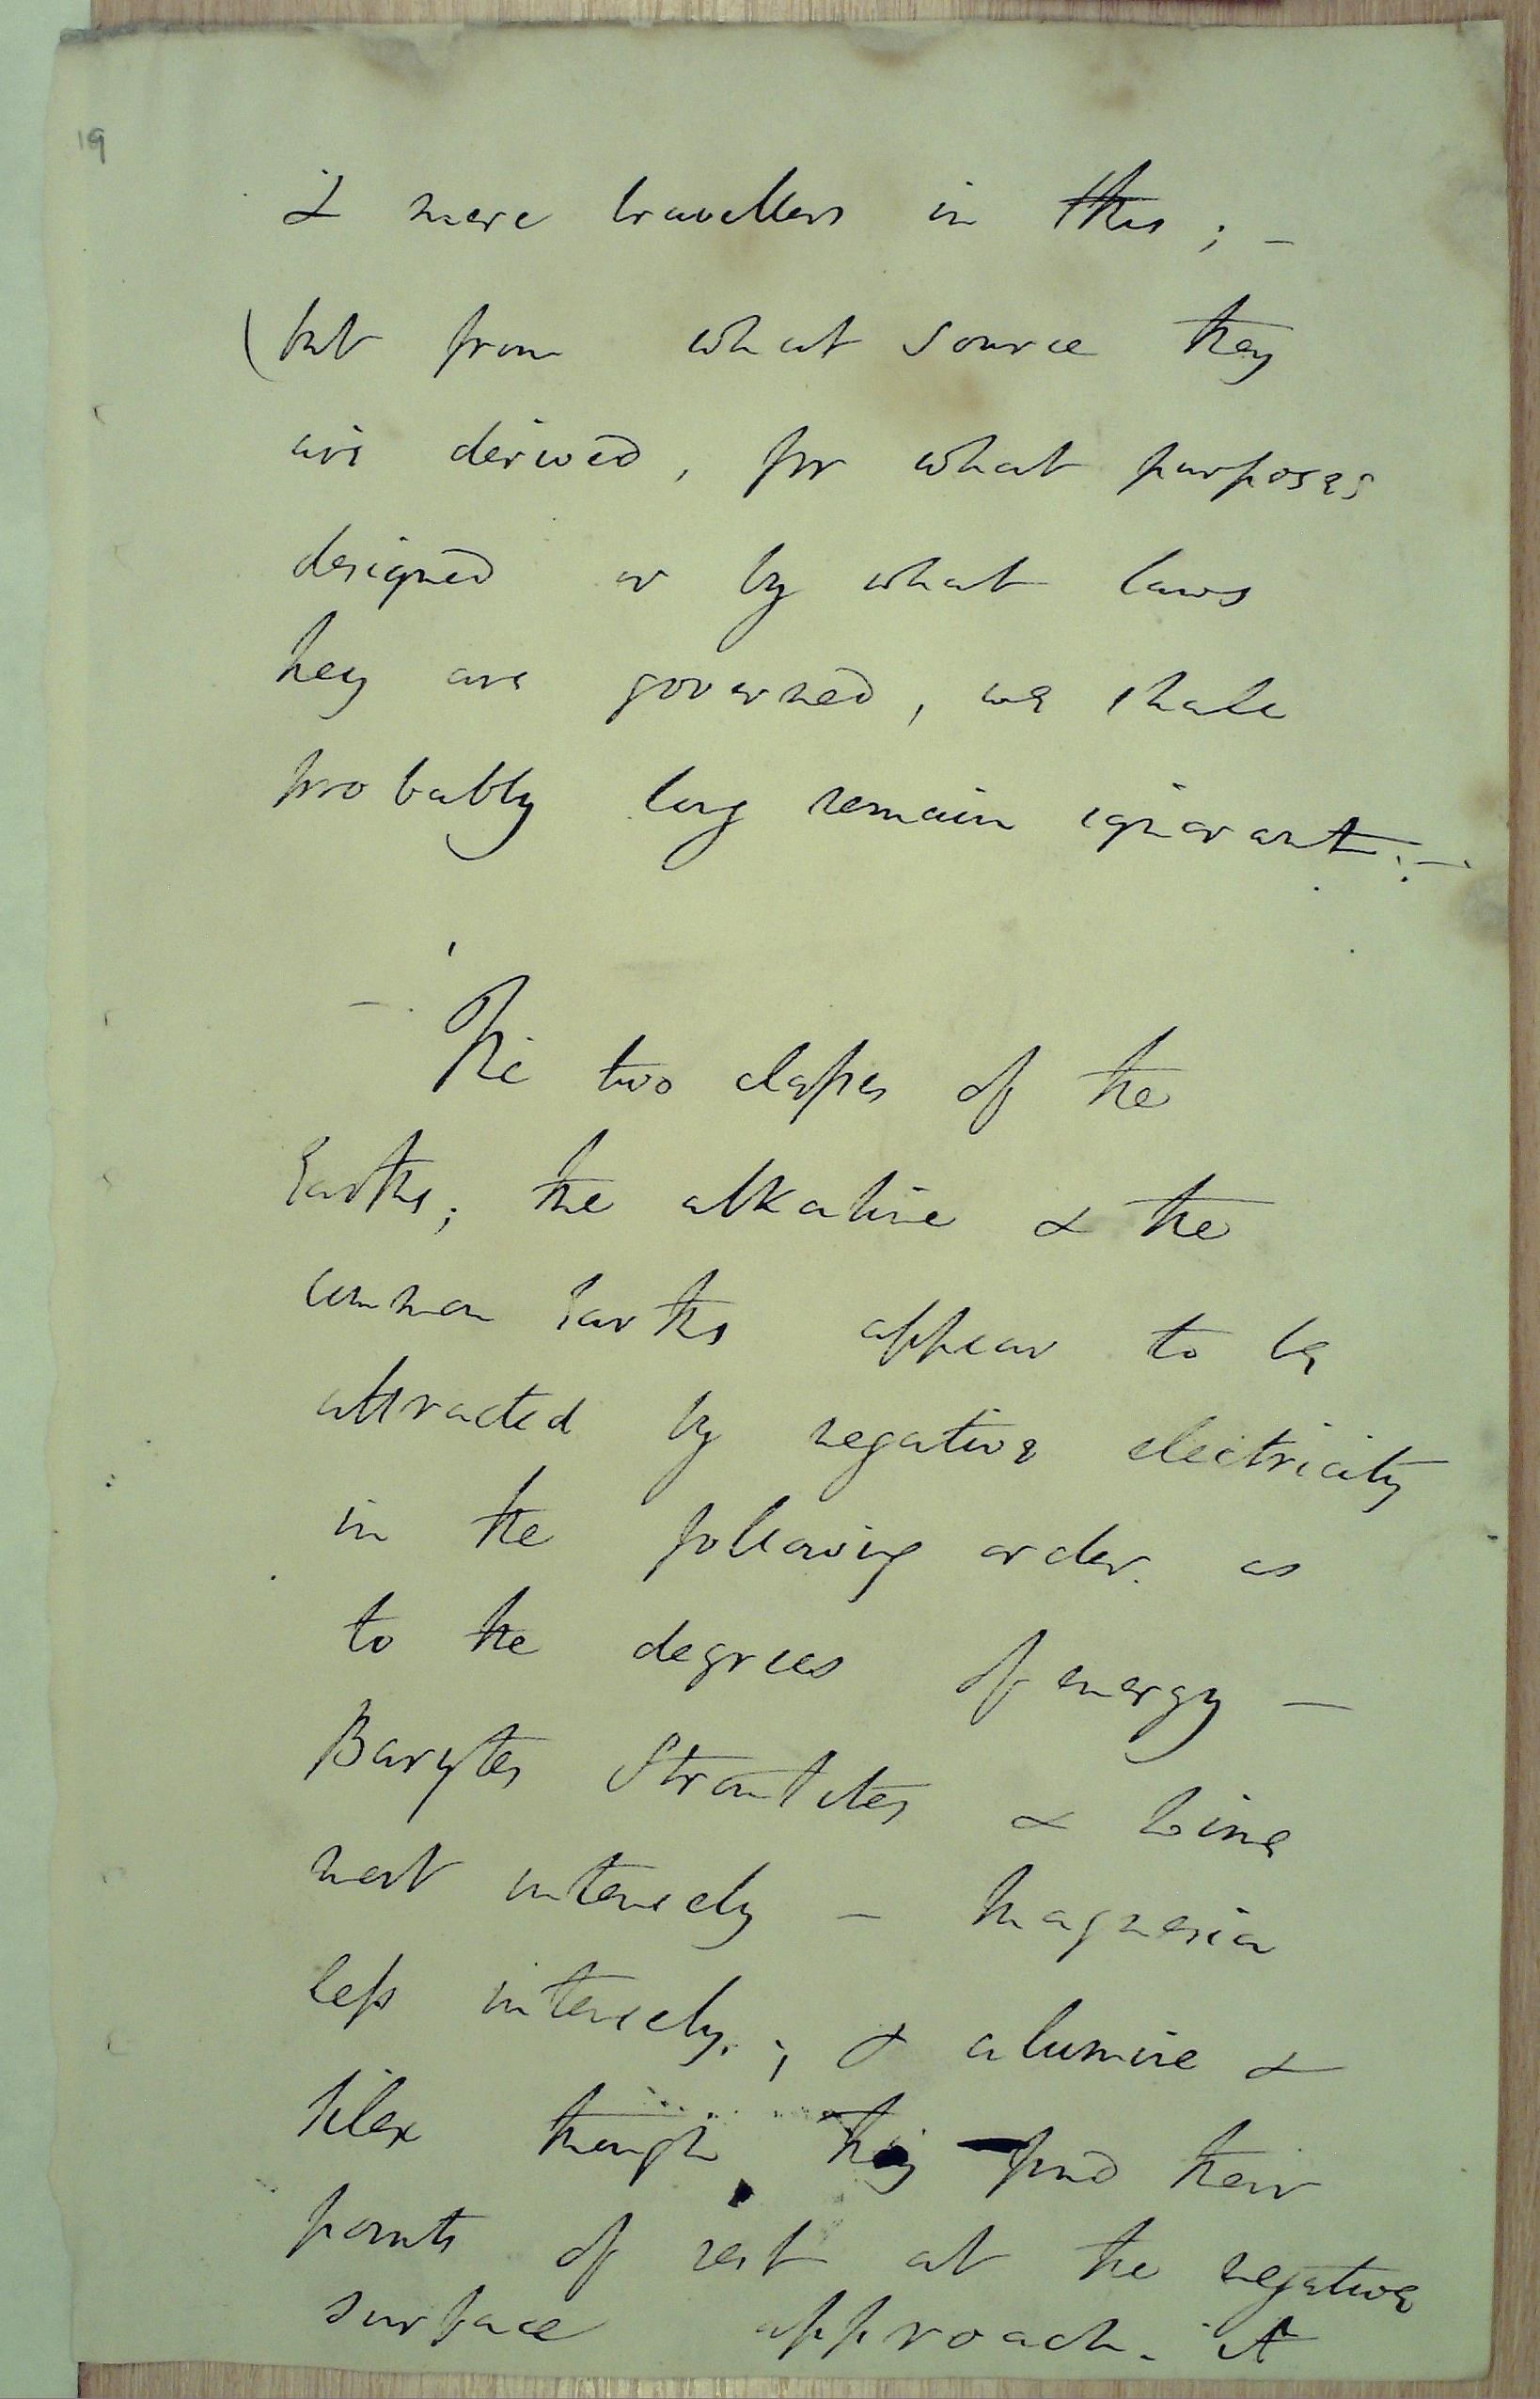 19
& mere travellers in this ; –
(but from what source they
are derived, for what purposes
designed or by what laws
they are governed, we shall
probably long remain ignorant. –
– The two classes of the
Earths; the alkaline & the
common Earths appear to be
attracted by negative electricity
in the following order. as
to the degrees of energy –
Barytes Strontites & Lime
most intensely – Magnesia
less intensely. ; & alumine &
silex though they find their
points of rest at the negative
surface approach. it